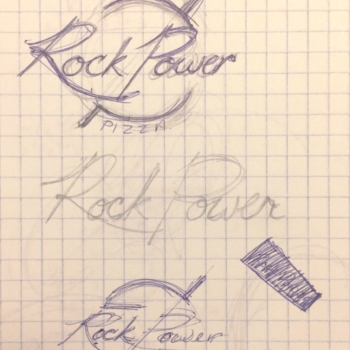 Rock Power
PIZZA
Rock Power
Rock Power